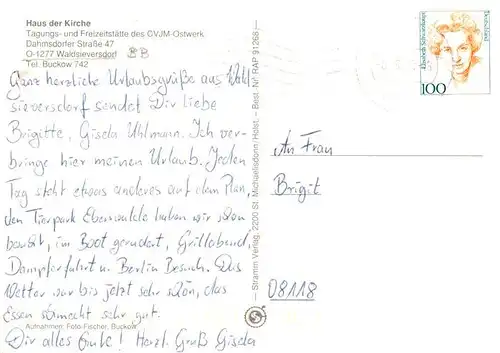 Haus der Kirche
Tagungs- und Freizeitstätte des CVJM-Ostwerk
Dahmsdorfer Straße 47
O-1277 Waldsieversdorf BB
Tel. Buckow 742
Ganz herzliche Urlaubsgrüße aus Wald
sieversdorf sendet Dir liebe
Brigitte, Gisela Uhlmann. Ich ver-
bringe hier meinen Urlaub. Jeden
Tag steht etwas anderes auf dem Plan,
den Tierpark Eberswalde haben wir schon
besucht, im Boot gerudert, Grillabend,
Dampferfahrt u. Berlin Besuch. Das
Wetter war bis jetzt sehr schön, das
Essen schmeckt sehr gut.
Aufnahmen: Foto-Fischer, Buckow
Dir alles Gute! Herzl. Gruß Gisela
Stramm Verlag, 2200 St. Michaelisdonn/Holst. – Best. Nr. RAP 91268
Elisabeth Schwarzhaupt
Deutschland
100
An Frau
Brigit
08118